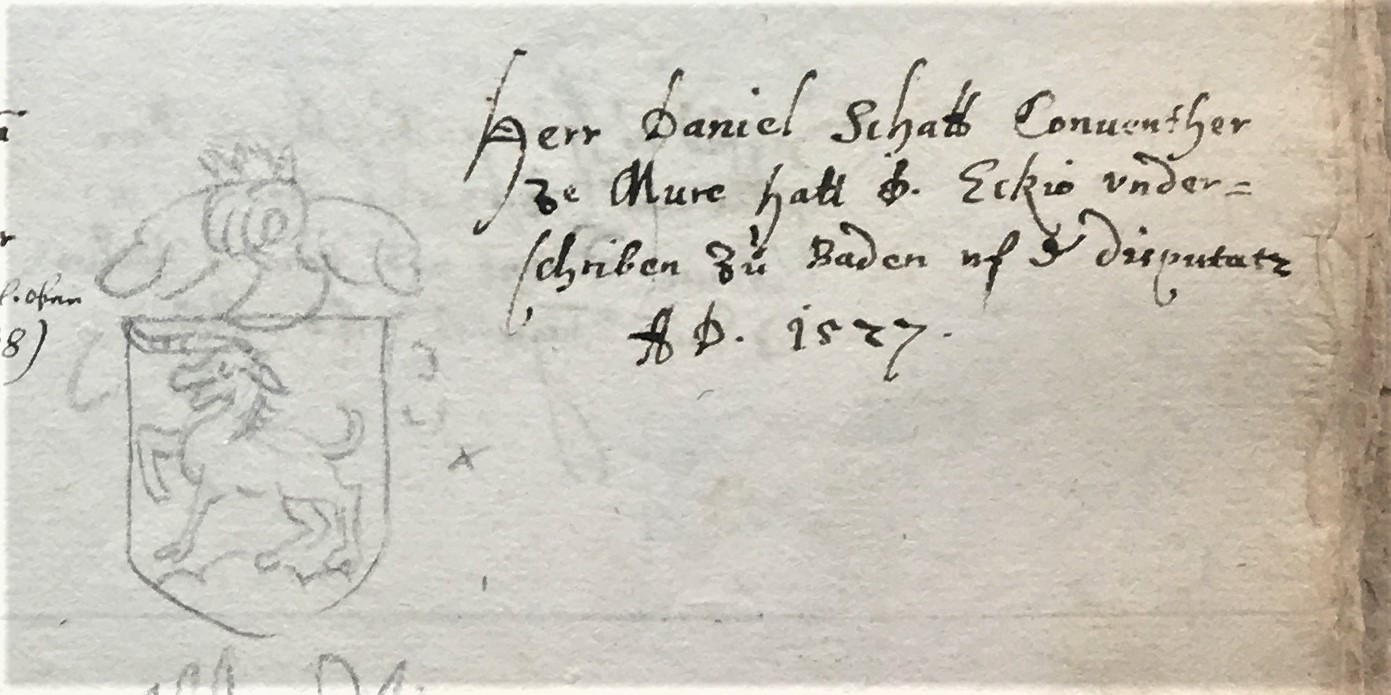 Herr Daniel Schatt Conuenther
ze Mure hatt D. Eckio vnder=
schriben zů Baden uf d disputatz
AD. 1527.
8)